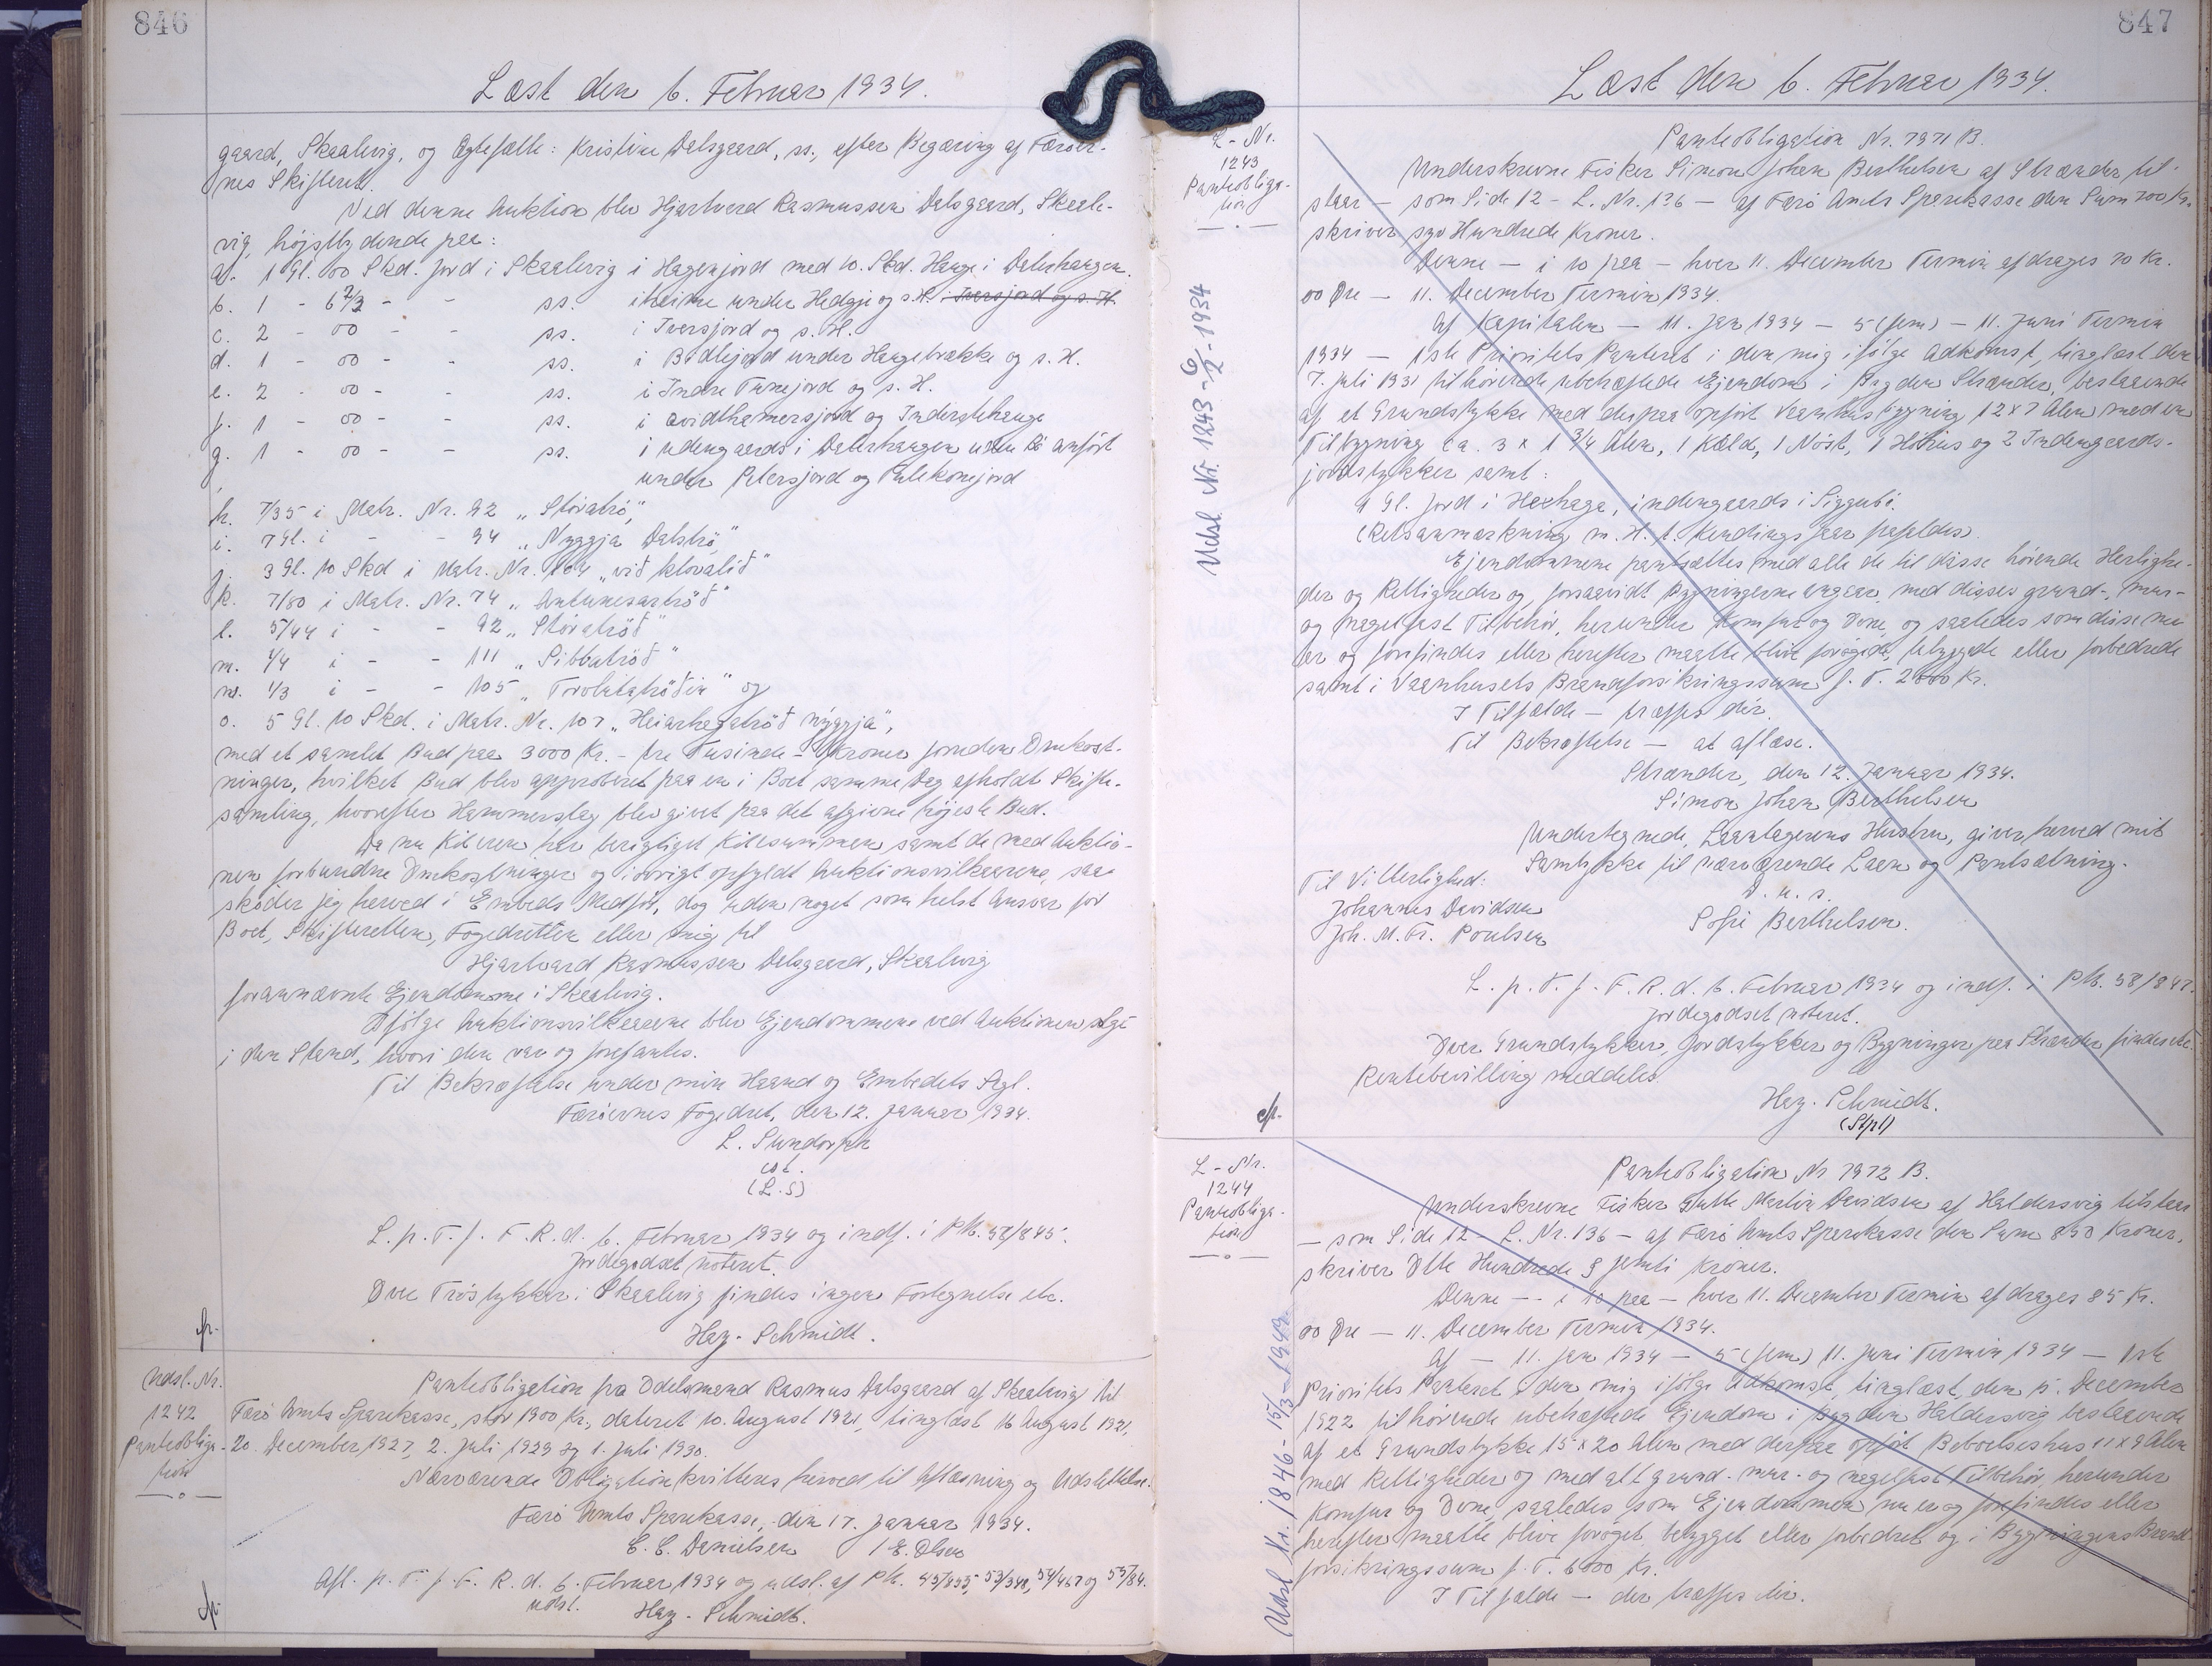 846
Læst den 6. Februar 1934.
gaard, Skaalevig, og Ægtefælle: Kristine Dalsgaard, ss., efter Begæring af Færøer-
nes Skifteret.
Ved denne Auktion blev Hjartvard Rasmussen Dalsgaard, Skaale-
vig, højstbydende paa:
a. 1 Gl. 00 Skd. Jord i Skaalevig i Hagenjord med 10. Skd. Hauge i Dalishaugen.
b. 1 - 6 2/3 - - ss. i heime under Hedgje og s. H. i Iversjord og s. H.
c. 2 - 00 - - ss. i Iversjord og s. H.
d. 1 - 00 - - ss. i Bødlejord under Haugebrække og s. H.
e. 2 00 - - ss. i Indre Tunejord og s. H.
f. 1 - 00 - - ss. i Qvidthamersjord og Inderstehauge
g. 1 - 00 - - ss. i udengaards i Dalishaugen uden Bø anført
under Petersjord og Palekonejord
h. 7/35 i Matr. Nr. 92 „Stóratrø,"
i. 7 Gl. i - - 94 „Nyggja Dalstrø,"
j. 3 Gl. 10 Skd i Matr. Nr. 104 „við klovalið"
k. 7/80 i Matr. Nr. 74 „Antunesartrøð"
l. 5/44 i - - 92 „Stóratrøð"
m. 1/4 i - - 111 „Sibbatrøð"
n. 1/3 i - - 105 „Torolvtatrøðin" og
o. 5 Gl. 10 Skd. i Matr. Nr. 107 „Heiarhagatrøð nýggja",
med et samlet Bud paa 3000 Kr. - tre Tusinde - Kroner foruden Omkost-
ninger, hvilket Bud blev approberet paa en i Boet samme Dag afholdt Skifte-
samling, hvorefter Hammerslag blev givet paa det afgivne højeste Bud.
Da nu Køberen har berigtiget Købesummen samt de med Auktio-
nen forbundne Omkostninger og iøvrigt opfyldt Auktionsvilkaarene, saa
skøder jeg herved i Embeds Medfør, dog uden noget som helst Ansvar for
Boet, Skifteretten, Fogedretten eller mig til
Hjartvard Rasmussen Dalsgaard, Skaalevig
forannævnte Ejendomme i Skaalevig.
Ifølge Auktionsvilkaarene blev Ejendommene ved Auktionen solgt
i den Stand, hvori den var og forefantes.
Til Bekræftelse under min Haand og Embedets Segl.
Færøernes Fogedret, den 12. Januar 1934.
L. Sundorph
cst.
(L.S)
L. p. T. f. F. R. d. 6. Februar 1934 og indf. i Ptb. 58/845.
Jordegodset noteret.
Over Trøstykker i Skaalevig findes ingen Fortegnelse etc.
Hay. Schmidt.
Udsl. Nr.
1242
Panteobliga-
tion
Panteobligation fra Odelsmand Rasmus Dalsgaard af Skaalevig til
Færø Amts Sparekasse, stor 1900 Kr., dateret 10. August 1921, tinglæst 16 August 1921,
20. December 1927, 2. Juli 1929 og 1. Juli 1930.
Nærværende Obligation kvitteres herved til Aflæsning og Udslettelse.
Færø Amts Sparekasse, den 17. Januar 1934.
C. C. Danielsen / E. Olsen
Afl. p. T. f. F. R. d. 6. Februar 1934 og udsl. af Ptb. 45/855, 53/348, 54/467 og 55/84.
udst. Hay. Schmidt.
847
Læst den 6. Februar 1934.
L - Nr.
1243
Panteobliga-
tion
Udsl. Nr. 1243 - 6/2 - 1934
Panteobligation Nr. 7971 B.
Underskrevne Fisker Simon Johan Berthelsen af Strænder til-
staar - som Side 12 - L. Nr. 136 - af Færø Amts Sparekasse den Sum 700 Kr.
skriver syv Hundrede Kroner.
Denne - i 10 paa - hver 11. December Termin afdrages 70 Kr.
00 Øre - 11. December Termin 1934.
Af Kapitalen - 11. Jan 1934 - 5 (fem) - 11. Juni Termin
1934 - 1ste Prioritets Panteret i den mig ifølge Adkomst, tinglæst den
7. Juli 1931 tilhørende ubehæftede Ejendom i Bygden Strænder, bestaaende
af et Grundstykke med derpaa opført Vaanhusbygning 12x7 Alen med en
Tilbygning ca. 3 x 1 3/4 Alen, 1 Kæld, 1 Nøst, 1 Hihus og 2 Indengaards-
jordstykker samt:
1 Gl. Jord i Hexhaga, indengaards i Siggubø.
(Retsanmærkning m. H. t. Kendingsfaar frafaldes).
Ejendommene pantsættes med alle de til disse hørende Herlighe-
der og Rettigheder og, forsaavidt Bygningerne angaar, med disses grund-, mur-
og nagelfast Tilbehør, herunder Komfur og Ovne, og saaledes som disse nu
er og forefindes eller herefter maatte blive forøgede, tilbyggede eller forbedrede
samt i Vaanhusets Brandforsikringssum f. T. 2000 Kr.
I Tilfælde - træffes dér.
Til Bekræftelse - at aflæse.
Strænder, den 12. Januar 1934.
Simon Johan Berthelsen
Undertegnede, Laantagerens Hustru, giver herved mit
Samtykke til nærværende Laan og Pantsætning.
D. u. s.
Sofie Berthelsen.
Til Vitterlighed:
Johannes Davidsen
Joh. M. Fr. Poulsen
L. p. T. f. F. R. d. 6. Februar 1934 og indf. i Ptb. 58/847.
Jordegodset noteret.
Over Grundstykker, Jordstykker og Bygninger paa Strænder findes etc.
Rentebevilling meddeles.
Hay. Schmidt.
(Stpl)
L - Nr.
1244
Panteobliga-
tion
Udsl. Nr. 1846 - 15/3 - 1949.
Panteobligation Nr 7972 B.
Underskrevne Fisker Martin Davidsen af Haldersvig tilstaar
- som Side 12 - L. Nr. 136 - af Færø Amts Sparekasse den Sum 850 Kroner,
skriver Otte Hundrede & femti Kroner.
Denne - i 10 paa - hver 11. December Termin afdrages 85 Kr.
00 Øre - 11. December Termin 1934.
Af - 11. Jan 1934 - 5 (fem) 11. Juni Termin 1934 - 1ste
Prioritets Panteret i den mig ifølge Adkomst, tinglæst, den 15. December
1922 tilhørende ubehæftede Ejendom i Bygden Haldersvig bestaaende
af et Grundstykke 15 x 20 Alen med derpaa opført Beboelseshus 11 x 9 Alen
med Rettigheder og med alt grund- mur- og nagelfast Tilbehør, herunder
Komfur og Ovne, saaledes, som Ejendommen nu er og forefindes eller
herefter maatte blive forøget, bebygget eller forbedret og i Bygningens Brand-
forsikringssum f. T. 6000 Kr.
I Tilfælde - der træffes dér.